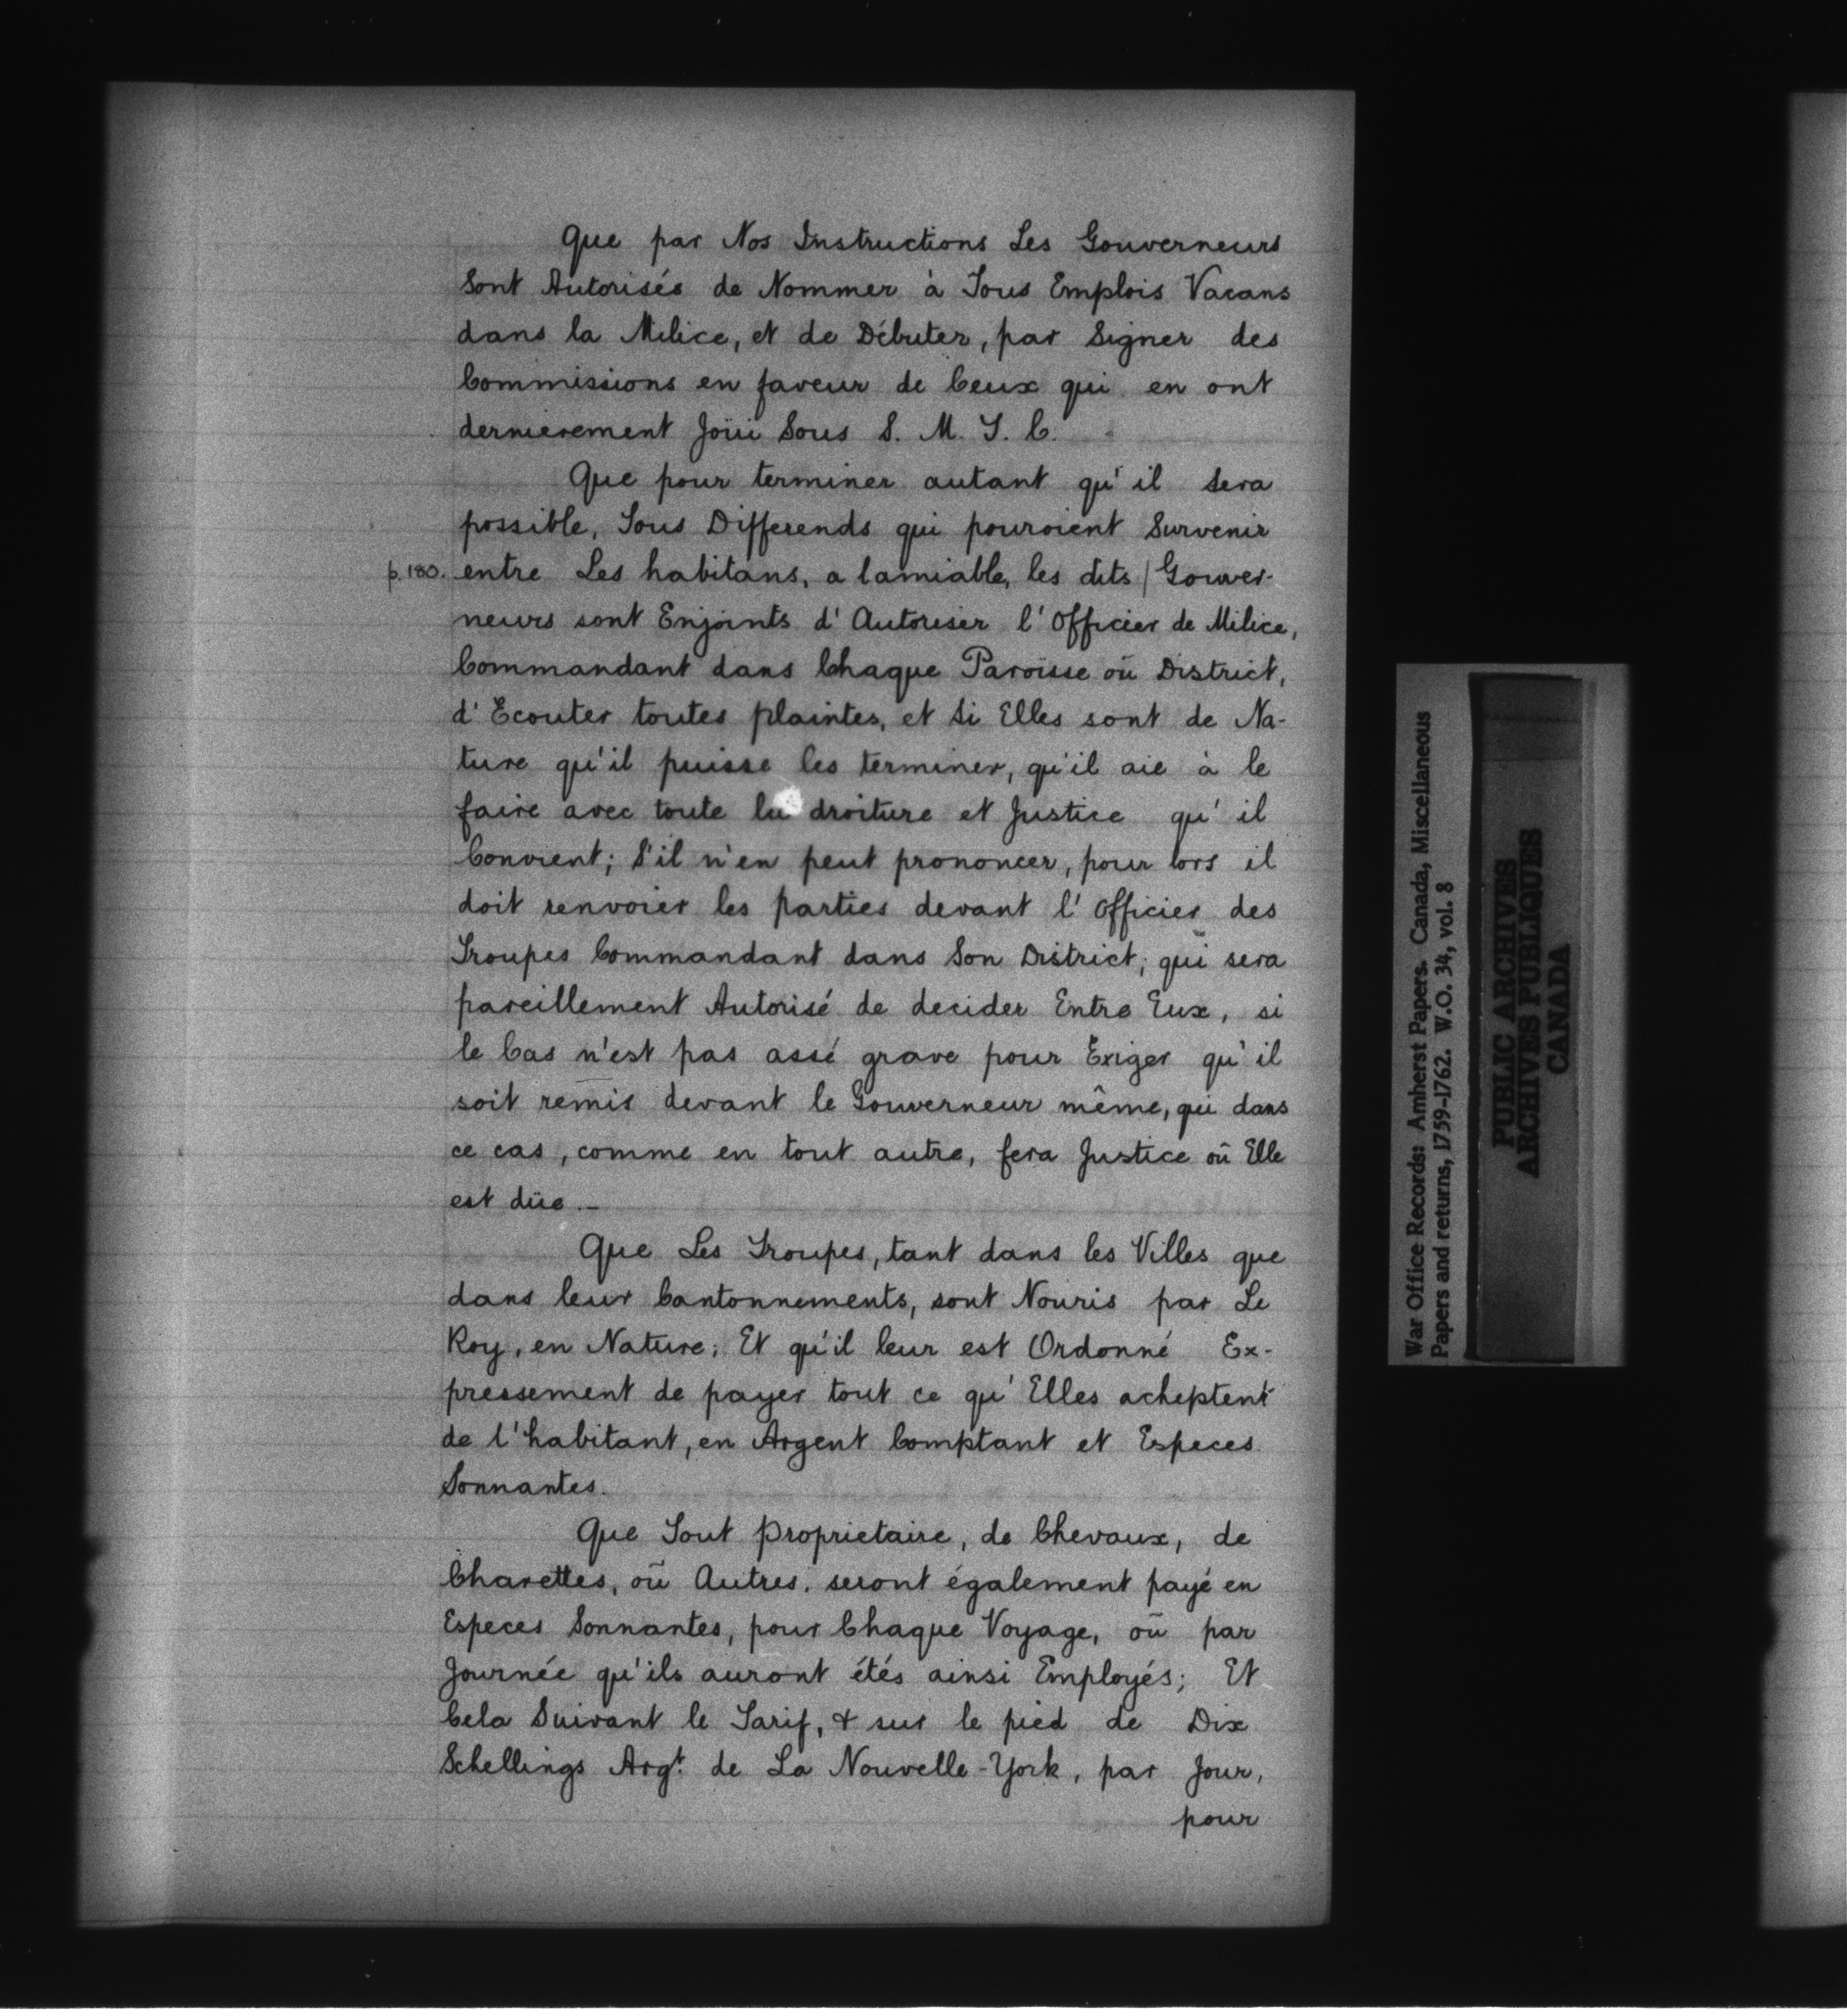 Que par Nos Instructions Les Gouverneurs
Sont Autorisés de Nommer à Tous Emplois Vacans
dans la Milice, et de Débuter, par Signer des
Commissions en faveur de Ceux qui en ont
dernierement Joüi Sous S. M. T. C.
Que pour terminer autant qu'il Sera
possible, Tous Differends qui pouroient Survenir
p. 180. entre Les habitans, a lamiable, les dits / Gouver-
neurs sont Enjoints d'Autoriser l'Officier de Milice,
Commandant dans Chaque Paroisse oũ District,
d'Ecouter toutes plaintes, et Si Elles sont de Na-
ture qu'il puisse les terminer, qu'il aie à le
faire avec toute la droiture et Justice qu'il
Convient; S'il n'en peut prononcer, pour lors il
doit renvoier les parties devant l'Officier des
Troupes Commandant dans Son District; qui sera
pareillement Autorisé de decider Entre Eux, si
le Cas n'est pas assé grave pour Exiger qu'il
soit remis devant le Gouverneur même, qui dans
ce cas, comme en tout autre, fera Justice oũ Elle
est düe.—
Que Les Troupes, tant dans les Villes que
dans leur Cantonnements, sont Nouris par Le
Roy, en Nature; Et qu'il leur est Ordonné Ex-
pressement de payer tout ce qu'Elles acheptent
de l'habitant, en Argent Comptant et Especes
Sonnantes.
Que Tout Proprietaire, de Chevaux, de
Charettes, oũ Autres, seront également payé en
Especes Sonnantes, pour Chaque Voyage, oũ par
Journée qu'ils auront étés ainsi Employés; Et
Cela Suivant le Tarif, & sur le pied de Dix
Schellings Argt. de La Nouvelle-York, par Jour,
pour
War Office Records: Amherst Papers. Canada, Miscellaneous
Papers and returns, 1759-1762. W.O. 34, vol. 8
PUBLIC ARCHIVES
ARCHIVES PUBLIQUES
CANADA